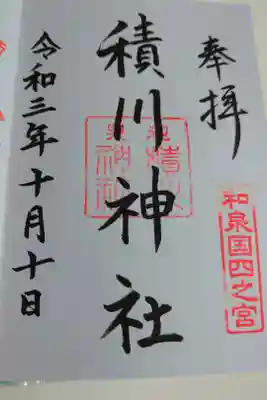 奉拝
和泉国四之宮
積川神社
令和三年十月十日